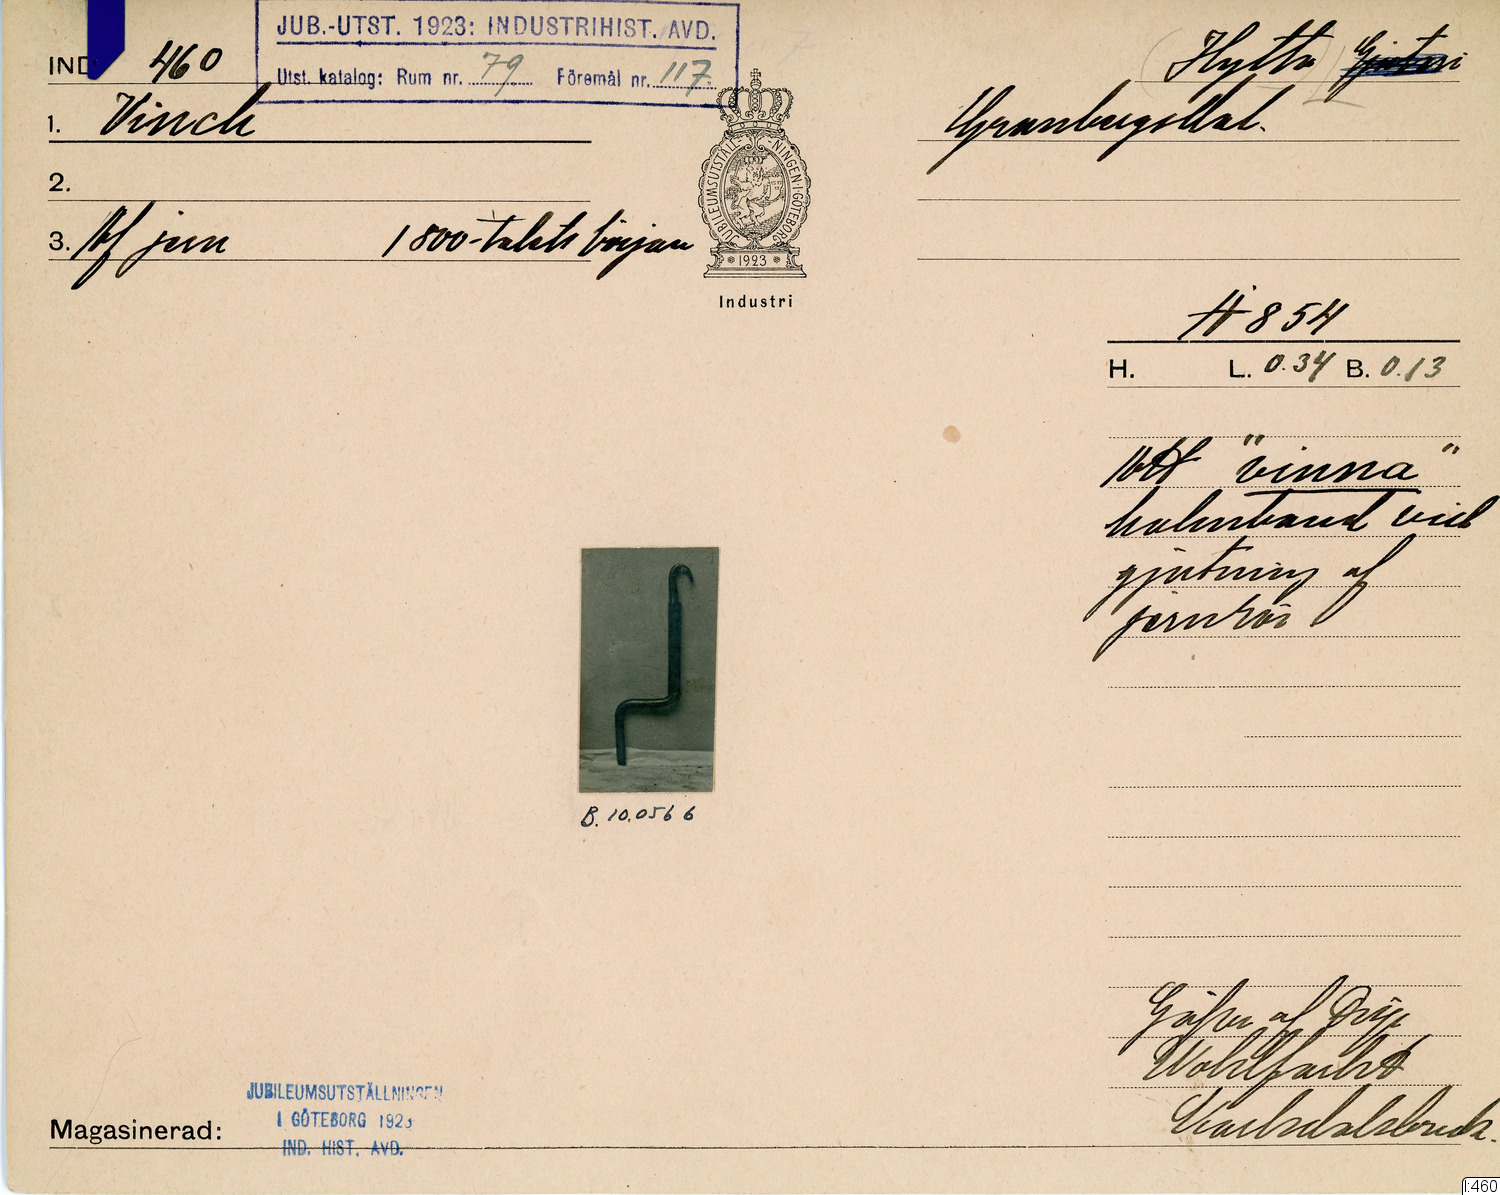 JUB.-UTST. 1923: INDUSTRIHIST. AVD.
Utst. katalog: Rum nr. 79 Föremål nr. 117
IND 460
Hytta Gjuteri
1. Vinch
Granbergsdal.
2.
3. Af jern 1800-talets början
JUBILEUMSUTSTÄLLNINGEN I GÖTEBORG
1923
Industri
H 854
H. L. 0.34 B. 0.13
Att "vinna"
halmband vid
gjutning af
jernrör
B. 10.056 6
Gåfva af Disp.
Wohlfarth
Karlsdalsbruk.
JUBILEUMSUTSTÄLLNINGEN
I GÖTEBORG 1923
IND. HIST. AVD.
Magasinerad:
I:460